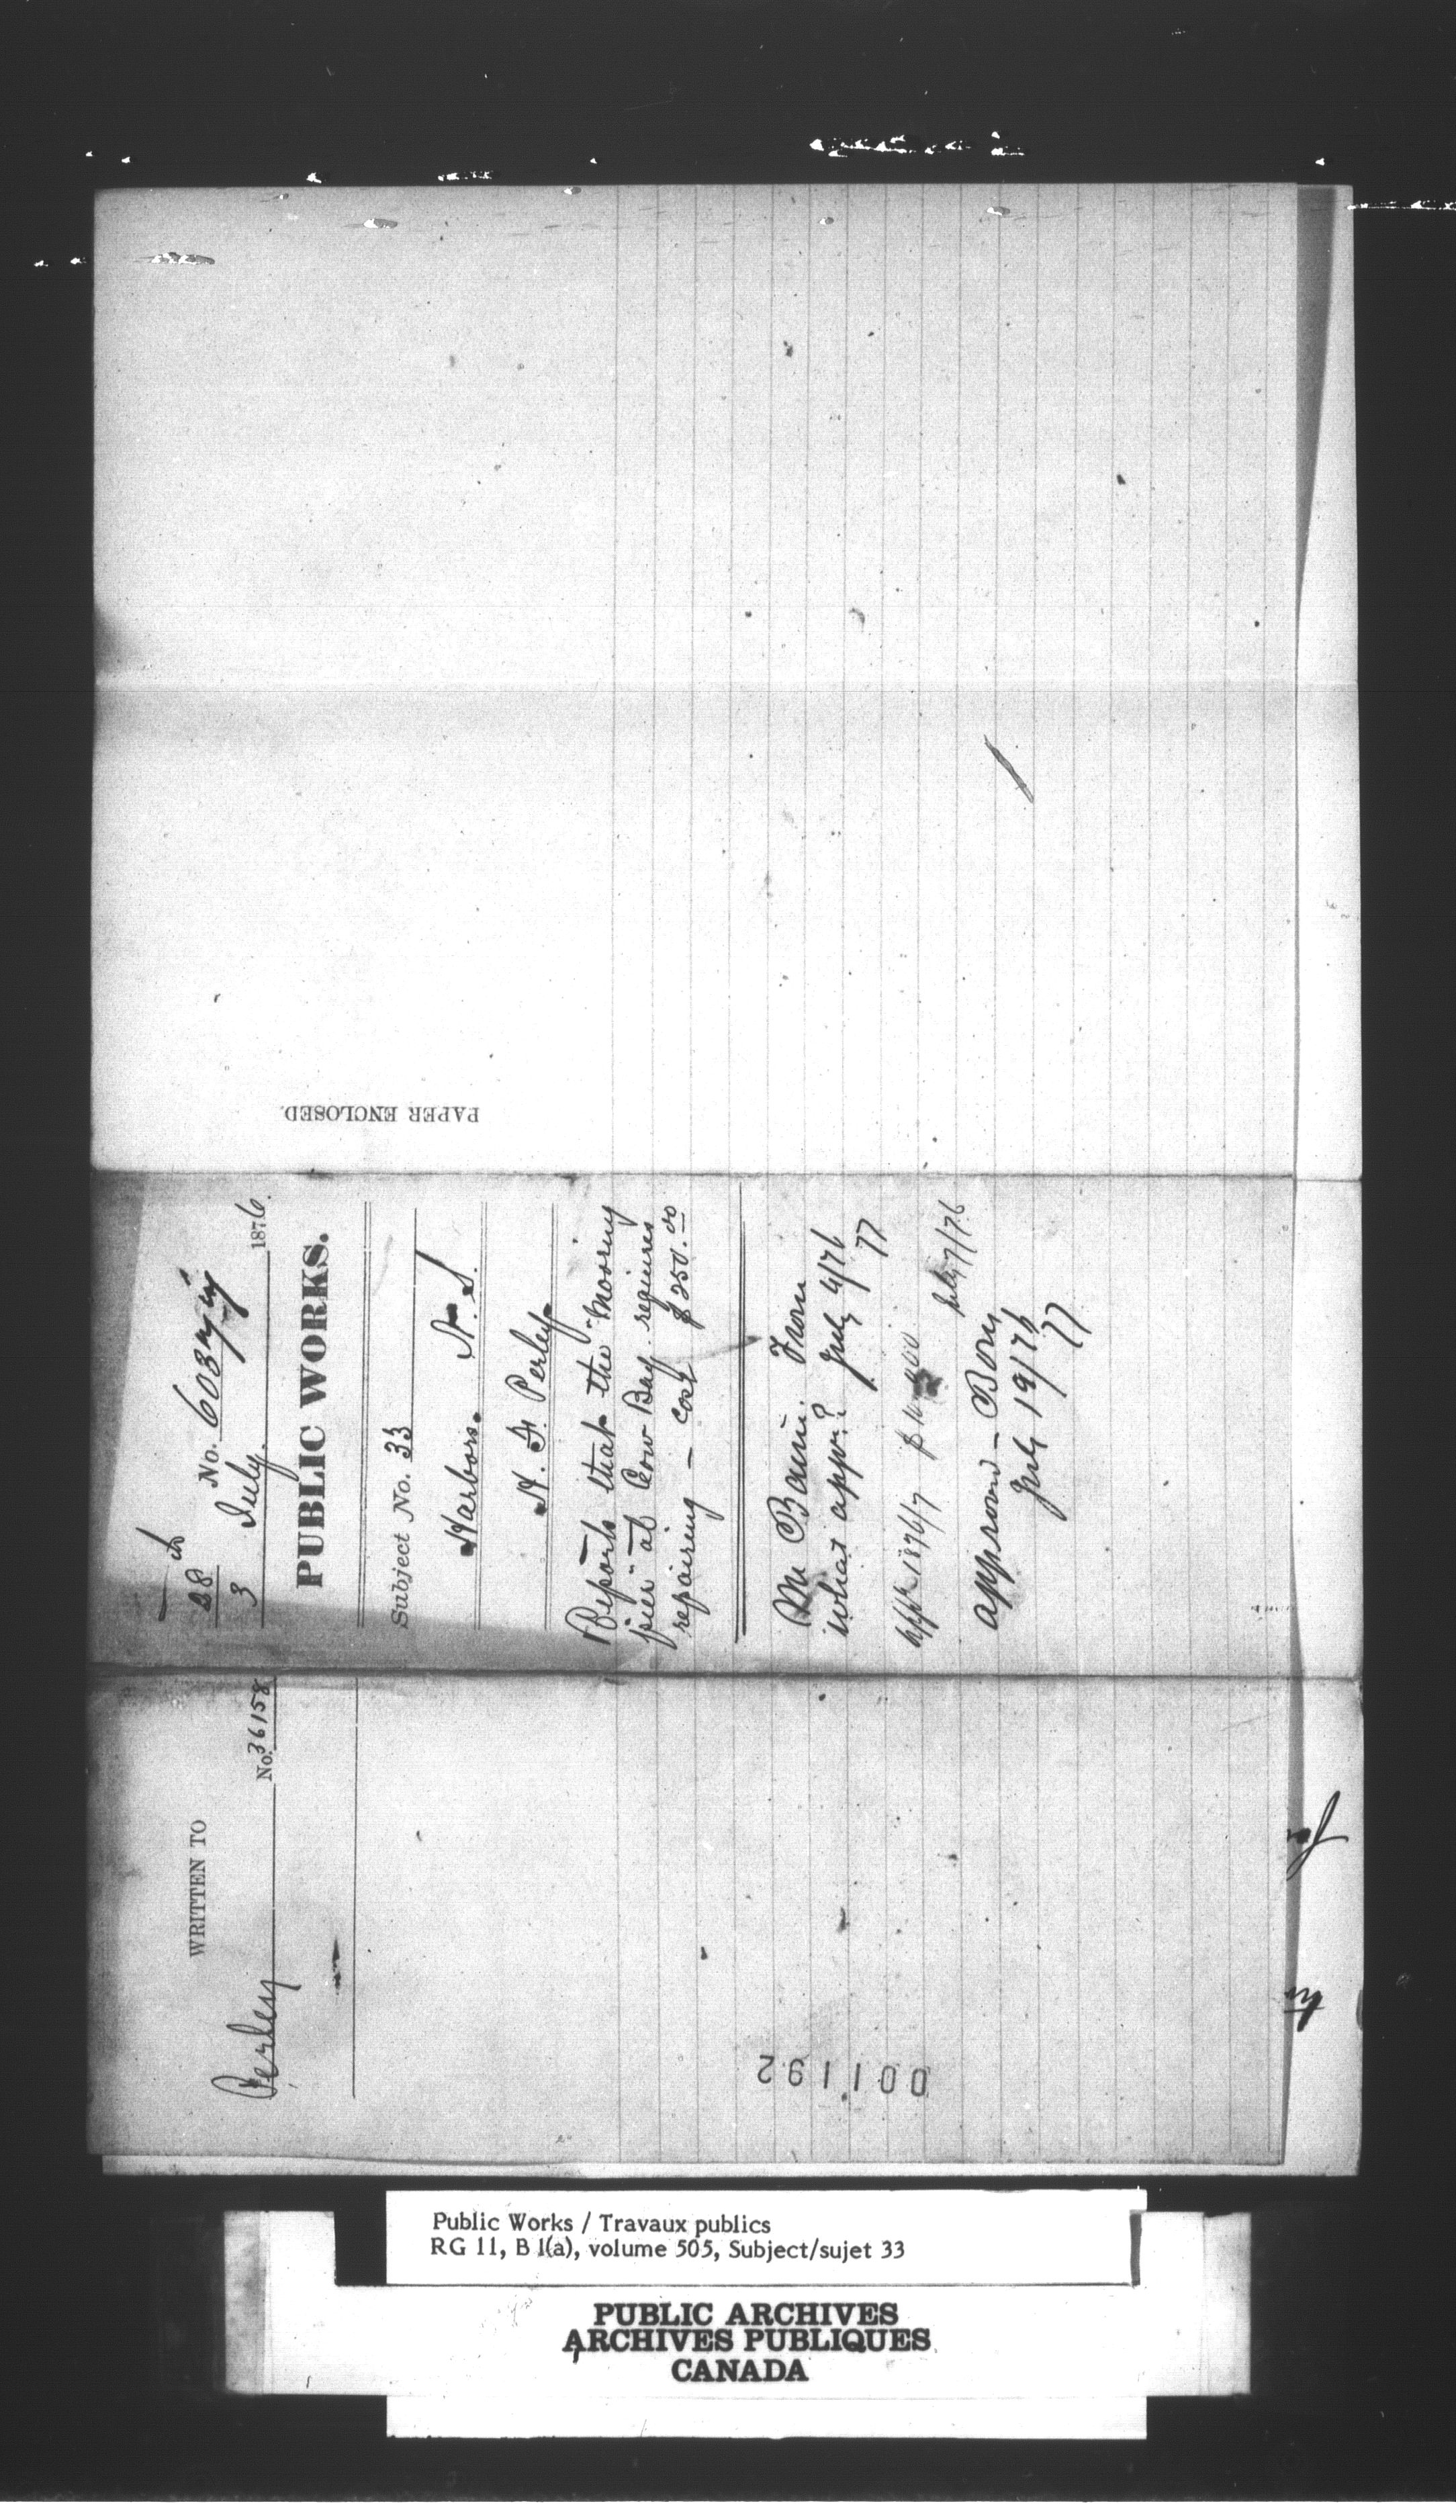 28
No. 60371
3 July. 1876.
PUBLIC WORKS.
Subject No. 33
Harbors. N. S.
H. F. Perley
Reports that the "Mooring
pier" at Cow Bay requires
repairing — cost $250.00
Mr Baine. From
what appr.? July 4/76
77
appr 1876/7
July 7/76
approved —
July 19/76
77
PAPER ENCLOSED.
WRITTEN TO
Perley No. 36158
001192
for
Public Works / Travaux publics
RG 11, B 1(a), volume 505, Subject/sujet 33
PUBLIC ARCHIVES
ARCHIVES PUBLIQUES
CANADA